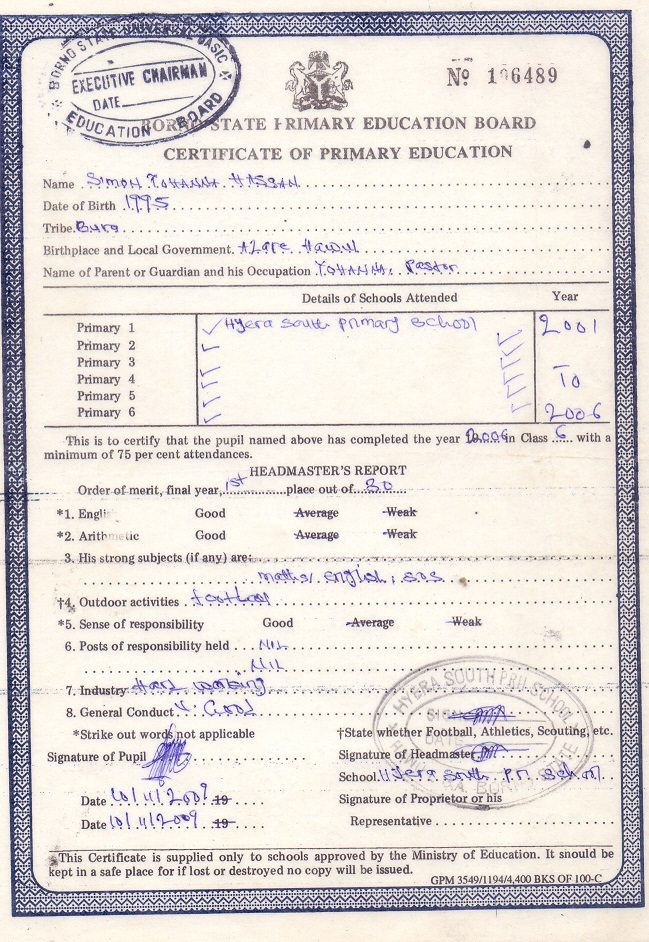 BORNO STATE UNIVERSAL BASIC
EXECUTIVE CHAIRMAN
DATE
EDUCATION BOARD
No 196489
BORNO STATE PRIMARY EDUCATION BOARD
CERTIFICATE OF PRIMARY EDUCATION
Name Simon Yohanna Hassan
Date of Birth 1995
Tribe Bura
Birthplace and Local Government. Azare Hawul
Name of Parent or Guardian and his Occupation Yohanna, Pastor
Details of Schools Attended Year
Primary 1 Hyera South primary School 2001
Primary 2
Primary 3
Primary 4 To
Primary 5
Primary 6 2006
This is to certify that the pupil named above has completed the year 2006 in Class 6 with a
minimum of 75 per cent attendances.
HEADMASTER'S REPORT
Order of merit, final year, 1st place out of 30
*1. English Good Average Weak
*2. Arithmetic Good Average Weak
3. His strong subjects (if any) are:
maths, english, S.O.S
†4. Outdoor activities football
*5. Sense of responsibility Good Average Weak
6. Posts of responsibility held NIL
NIL
7. Industry Hard working
8. General Conduct V. Good
*Strike out words not applicable
Signature of Pupil
Date 10/11/2009 19
Date 10/11/2009 19
HYERA SOUTH PRI SCHOOL
SIGN
DATE
BORNO STATE
†State whether Football, Athletics, Scouting, etc.
Signature of Headmaster
School. Hyera South Pri School
Signature of Proprietor or his
Representative
This Certificate is supplied only to schools approved by the Ministry of Education. It should be
kept in a safe place for if lost or destroyed no copy will be issued.
GPM 3549/1194/4,400 BKS OF 100-C